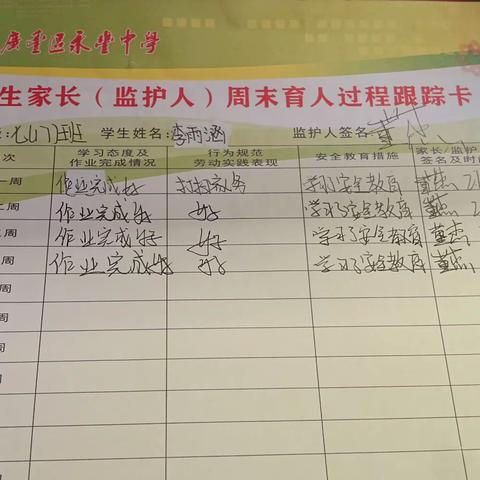 广重区永丰中学
生家长（监护人）周末育人过程跟踪卡
七(17)班 学生姓名:李雨涵 监护人签名
次 学习态度及作业完成情况 行为规范劳动实践表现 安全教育措施 家长/监护人签名及时间
一周 作业完成好 打扫家务 学习安全教育 董杰
二周 作业完成好 好 学习了安全教育 董杰
周 作业完成好 好 学习了安全教育 董杰
周 作业完成好 好 学习了安全教育 董杰
周
周
周
周
周